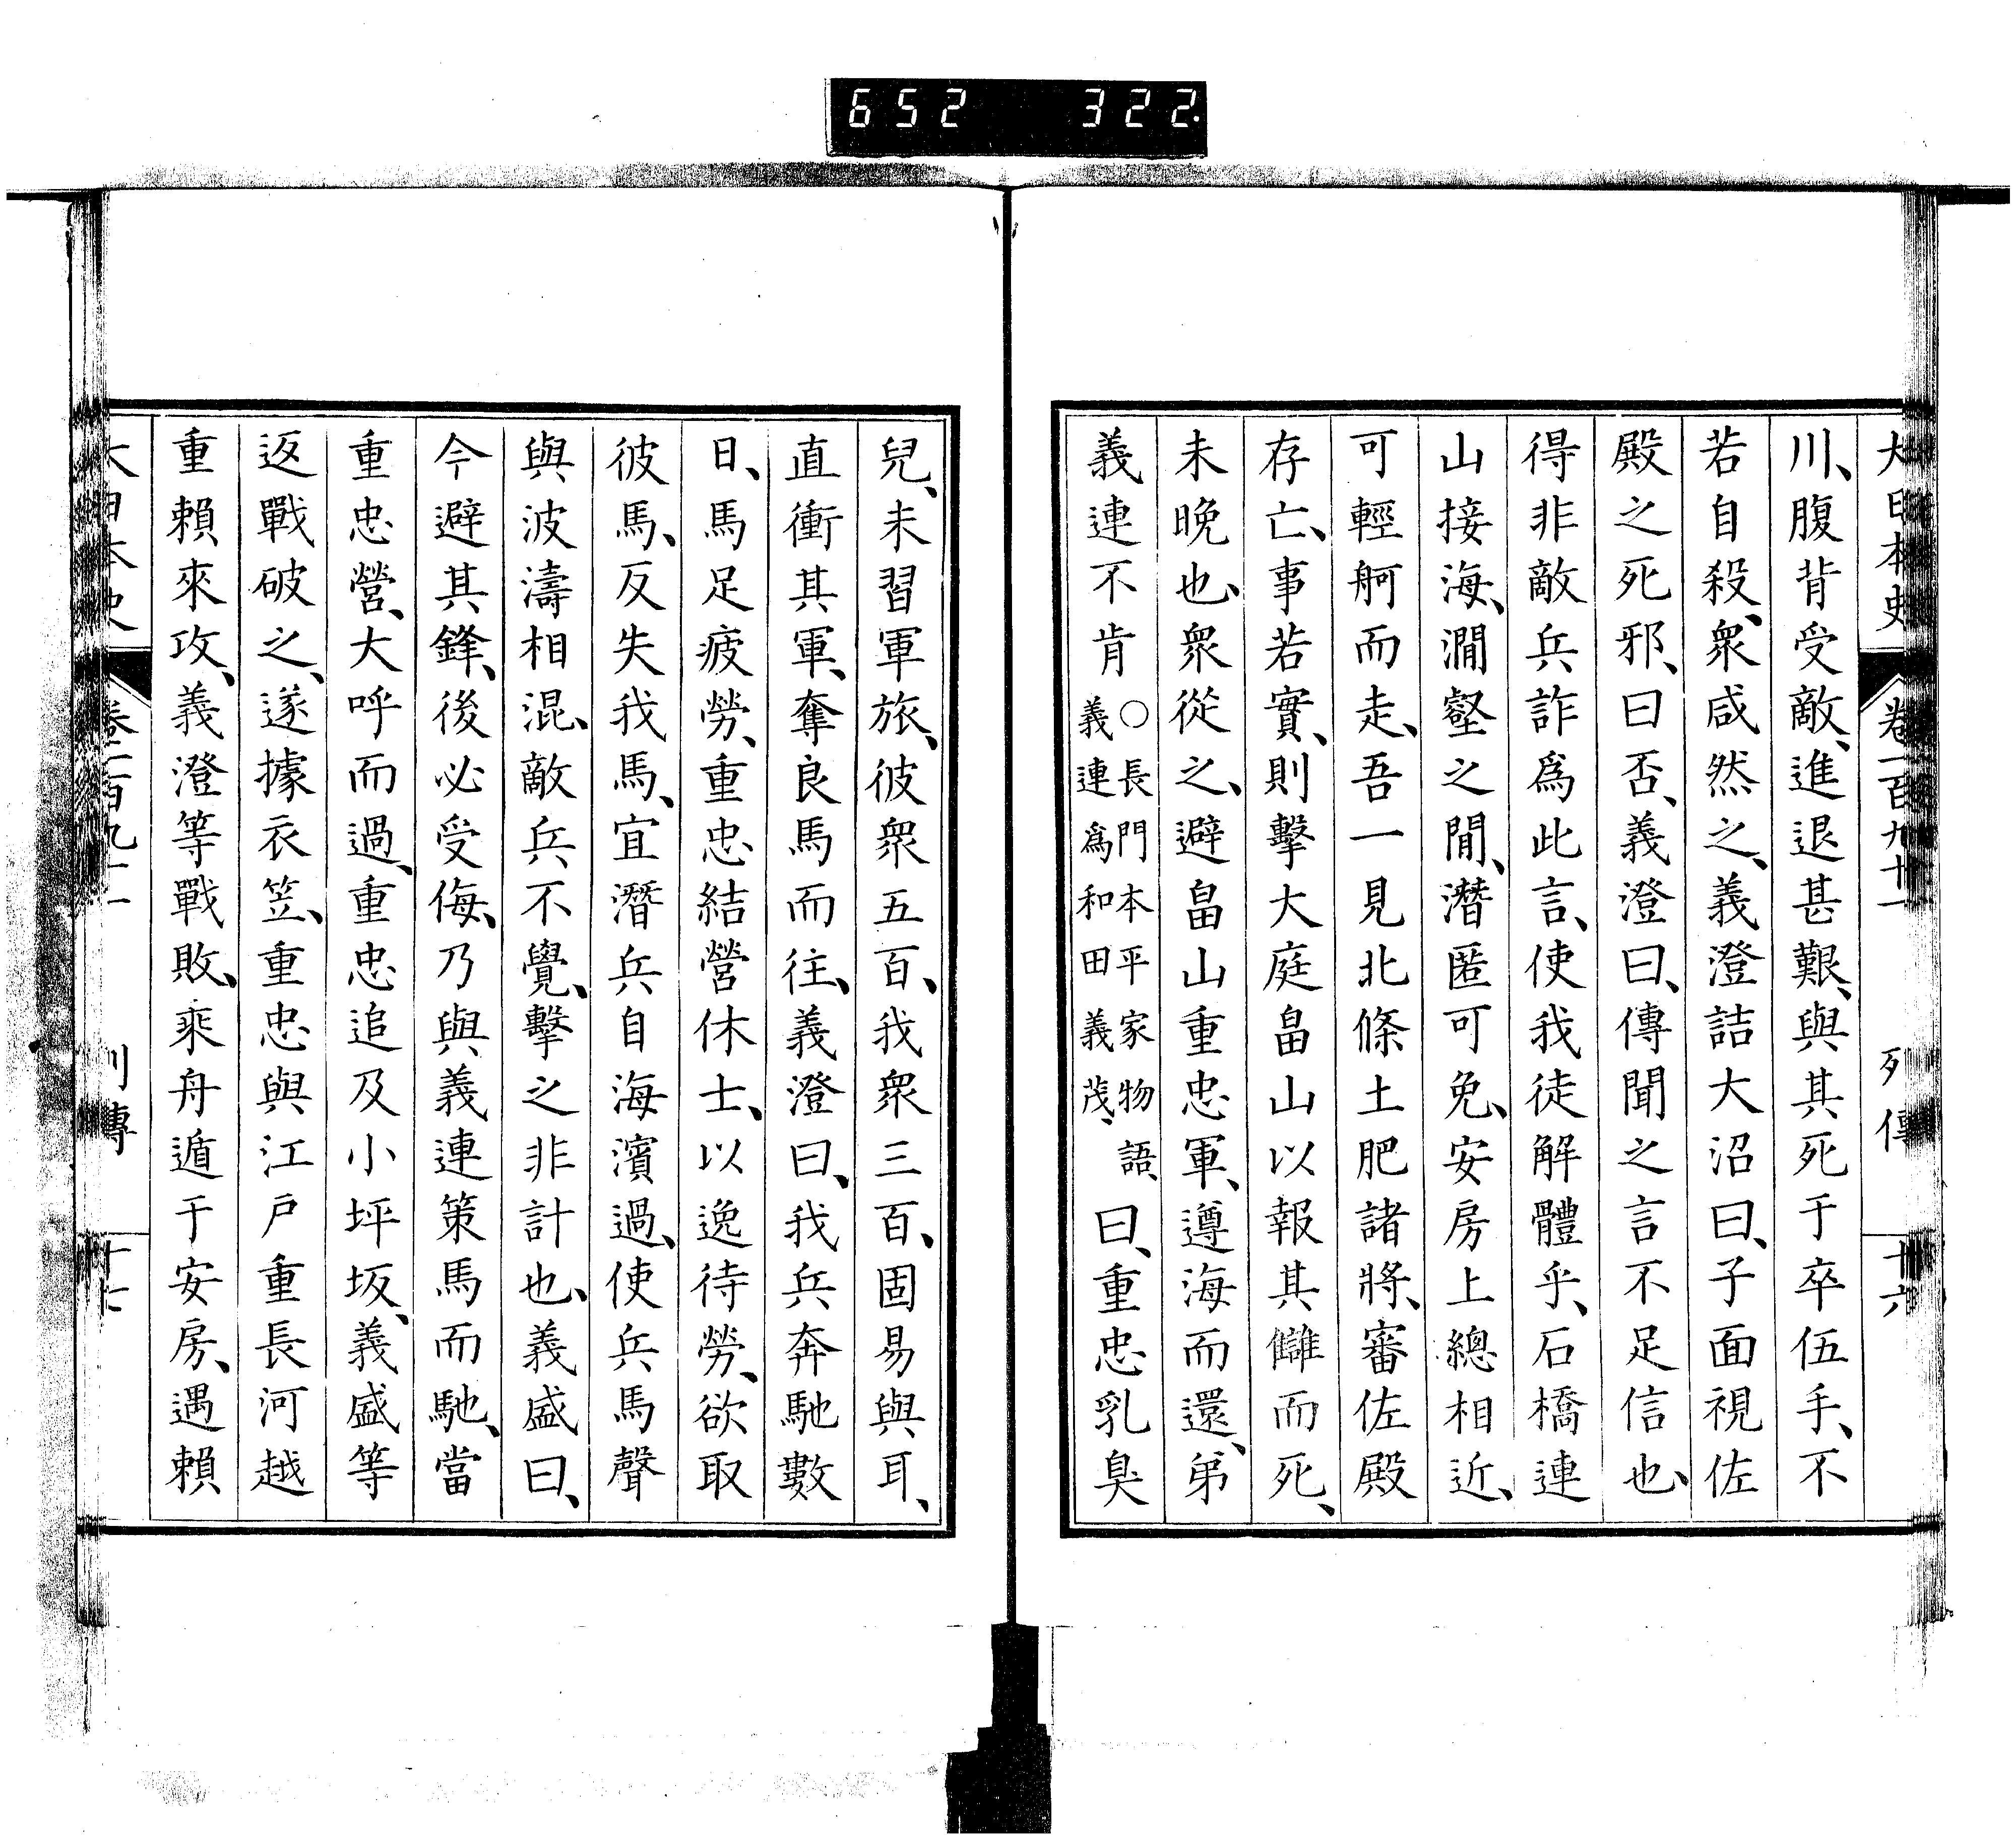 652 322
大日本史 卷一百九十一 列傳 十六
川、腹背受敵、進退甚艱、與其死于卒伍手、不
若自殺、衆咸然之、義澄詰大沼曰、子面視佐
殿之死邪、曰否、義澄曰、傳聞之言不足信也、
得非敵兵詐爲此言、使我徒解體乎、石橋連
山接海、澗壑之閒、潛匿可免、安房上總相近、
可輕舸而走、吾一見北條土肥諸將、審佐殿
存亡、事若實、則擊大庭畠山以報其讎而死、
未晚也、衆從之、避畠山重忠軍、遵海而還、弟
義連不肯
○長門本平家物語、
義連爲和田義茂、
曰、重忠乳臭
兒、未習軍旅、彼衆五百、我衆三百、固易與耳、
直衝其軍、奪良馬而往、義澄曰、我兵奔馳數
日、馬足疲勞、重忠結營休士、以逸待勞、欲取
彼馬、反失我馬、宜潛兵自海濱過、使兵馬聲
與波濤相混、敵兵不覺、擊之非計也、義盛曰、
今避其鋒、後必受侮、乃與義連策馬而馳、當
重忠營、大呼而過、重忠追及小坪坂、義盛等
返戰破之、遂據衣笠、重忠與江戶重長河越
重賴來攻、義澄等戰敗、乘舟遁于安房、遇賴
大日本史 卷一百九十一 列傳 十七